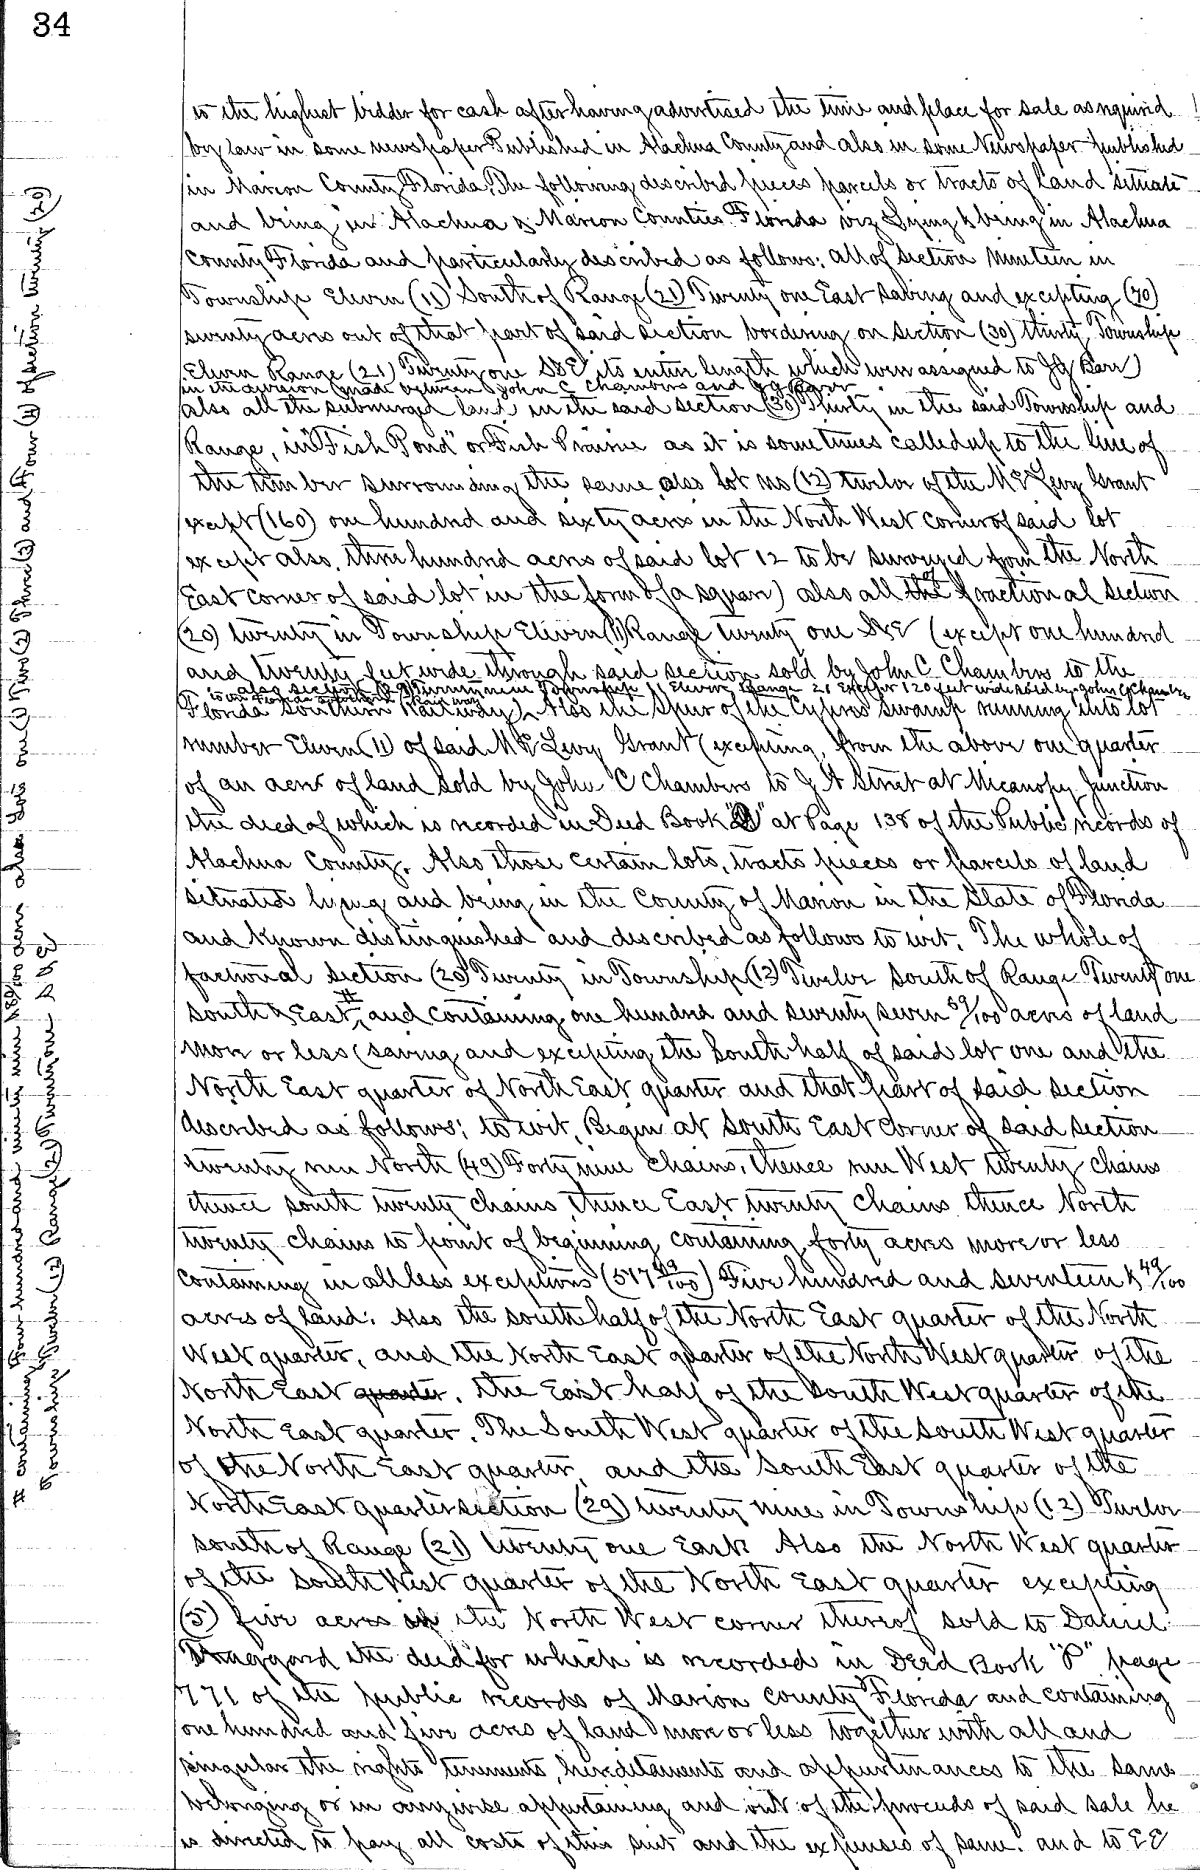 34
to the highest bidder for cash after having advertised the time and place for sale as required
by law in some newspaper Published in Alachua County and also in some Newspaper published
in Marion County Florida, The following described pieces parcels or tracts of land situate
and being in Alachua & Marion Counties Florida viz Lying & being in Alachua
County Florida and particularly described as follows: all of section nineteen in
Township Eleven (11) South of Range (21) Twenty one East saving and excepting (70)
seventy acres out of that part of said section bordering on section (30) thirty Township
Eleven Range (21) Twenty one S&E its entire length which were assigned to JG Barr)
in the division made between John C Chambers and J G Barr
also all the submerged land in the said section (30) Thirty in the said Township and
Range, in "Fish Pond" or Fish Prairie as it is some times called up to the line of
the timber surrounding the same, also lot no (12) twelve of the M E Levy Grant
except (160) one hundred and sixty acres in the North West corner of said lot
except also, three hundred acres of said lot 12 to be surveyed from the North
East corner of said lot in the form of a square) also all of fractional section
(20) twenty in Township Eleven (11) Range twenty one S&E (except one hundred
and twenty feet wide through said section sold by John C Chambers to the
also section (29) Twenty nine Township 11 Eleven Range 21 Except 120 feet wide sold by John C Chambers
to the Florida Southern Railway
Florida Southern Railway) Also the Spur of the Cypress swamp running into lot
number Eleven (11) of said M E Levy Grant (excepting, from the above one quarter
of an acre of land sold by John C Chambers to J A Strat at Micanopy Junction
the deed of which is recorded in Deed Book at Page 138 of the Public records of
Alachua County. Also those certain lots, tracts pieces or parcels of land
situated lying and being in the County of Marion in the State of Florida
and known distinguished and described as follows to wit. The whole of
factional section (20) Twenty in Township (12) Twelve South of Range Twenty one
South & East, # and containing one hundred and seventy seven 59/100 acres of land
more or less (saving and excepting the South half of said lot one and the
North East quarter of North East quarter and that part of said section
described as follows; to wit, Begin at South East Corner of said section
twenty run North (49) Forty nine chains, thence run West twenty chains
thence south twenty chains thence East twenty chains thence North
twenty chains to point of beginning containing forty acres more or less
containing in all less exceptions (517 49/100) Five hundred and seventeen & 49/100
acres of land: Also the south half of the North East quarter of the North
West quarter, and the North East quarter of the North West quarter of the
North East quarter. The East half of the South West quarter of the
North East quarter. The South West quarter of the South West quarter
of the North East quarter, and the South East quarter of the
North East quarter section (29) twenty nine in Township (12) Twelve
south of Range (21) twenty one East Also the North West quarter
of the South West quarter of the North East quarter excepting
(5) five acres in the North West corner thereof sold to Daniel
the deed for which is recorded in Deed Book "P" page
771 of the public records of Marion County Florida and containing
one hundred and five acres of land more or less together with all and
singular the rights tenements, hereditaments and appurtenances to the same
belonging or in anywise appertaining and out of the proceeds of said sale he
is directed to pay all costs of this suit and the expenses of same. and to EE
# containing Four hundred and ninety nine 189/100 acres also lots one (1) Two (2) Three (3) and Four (4) of section twenty (20)
Township Twelve (12) Range (21) Twenty one S & E